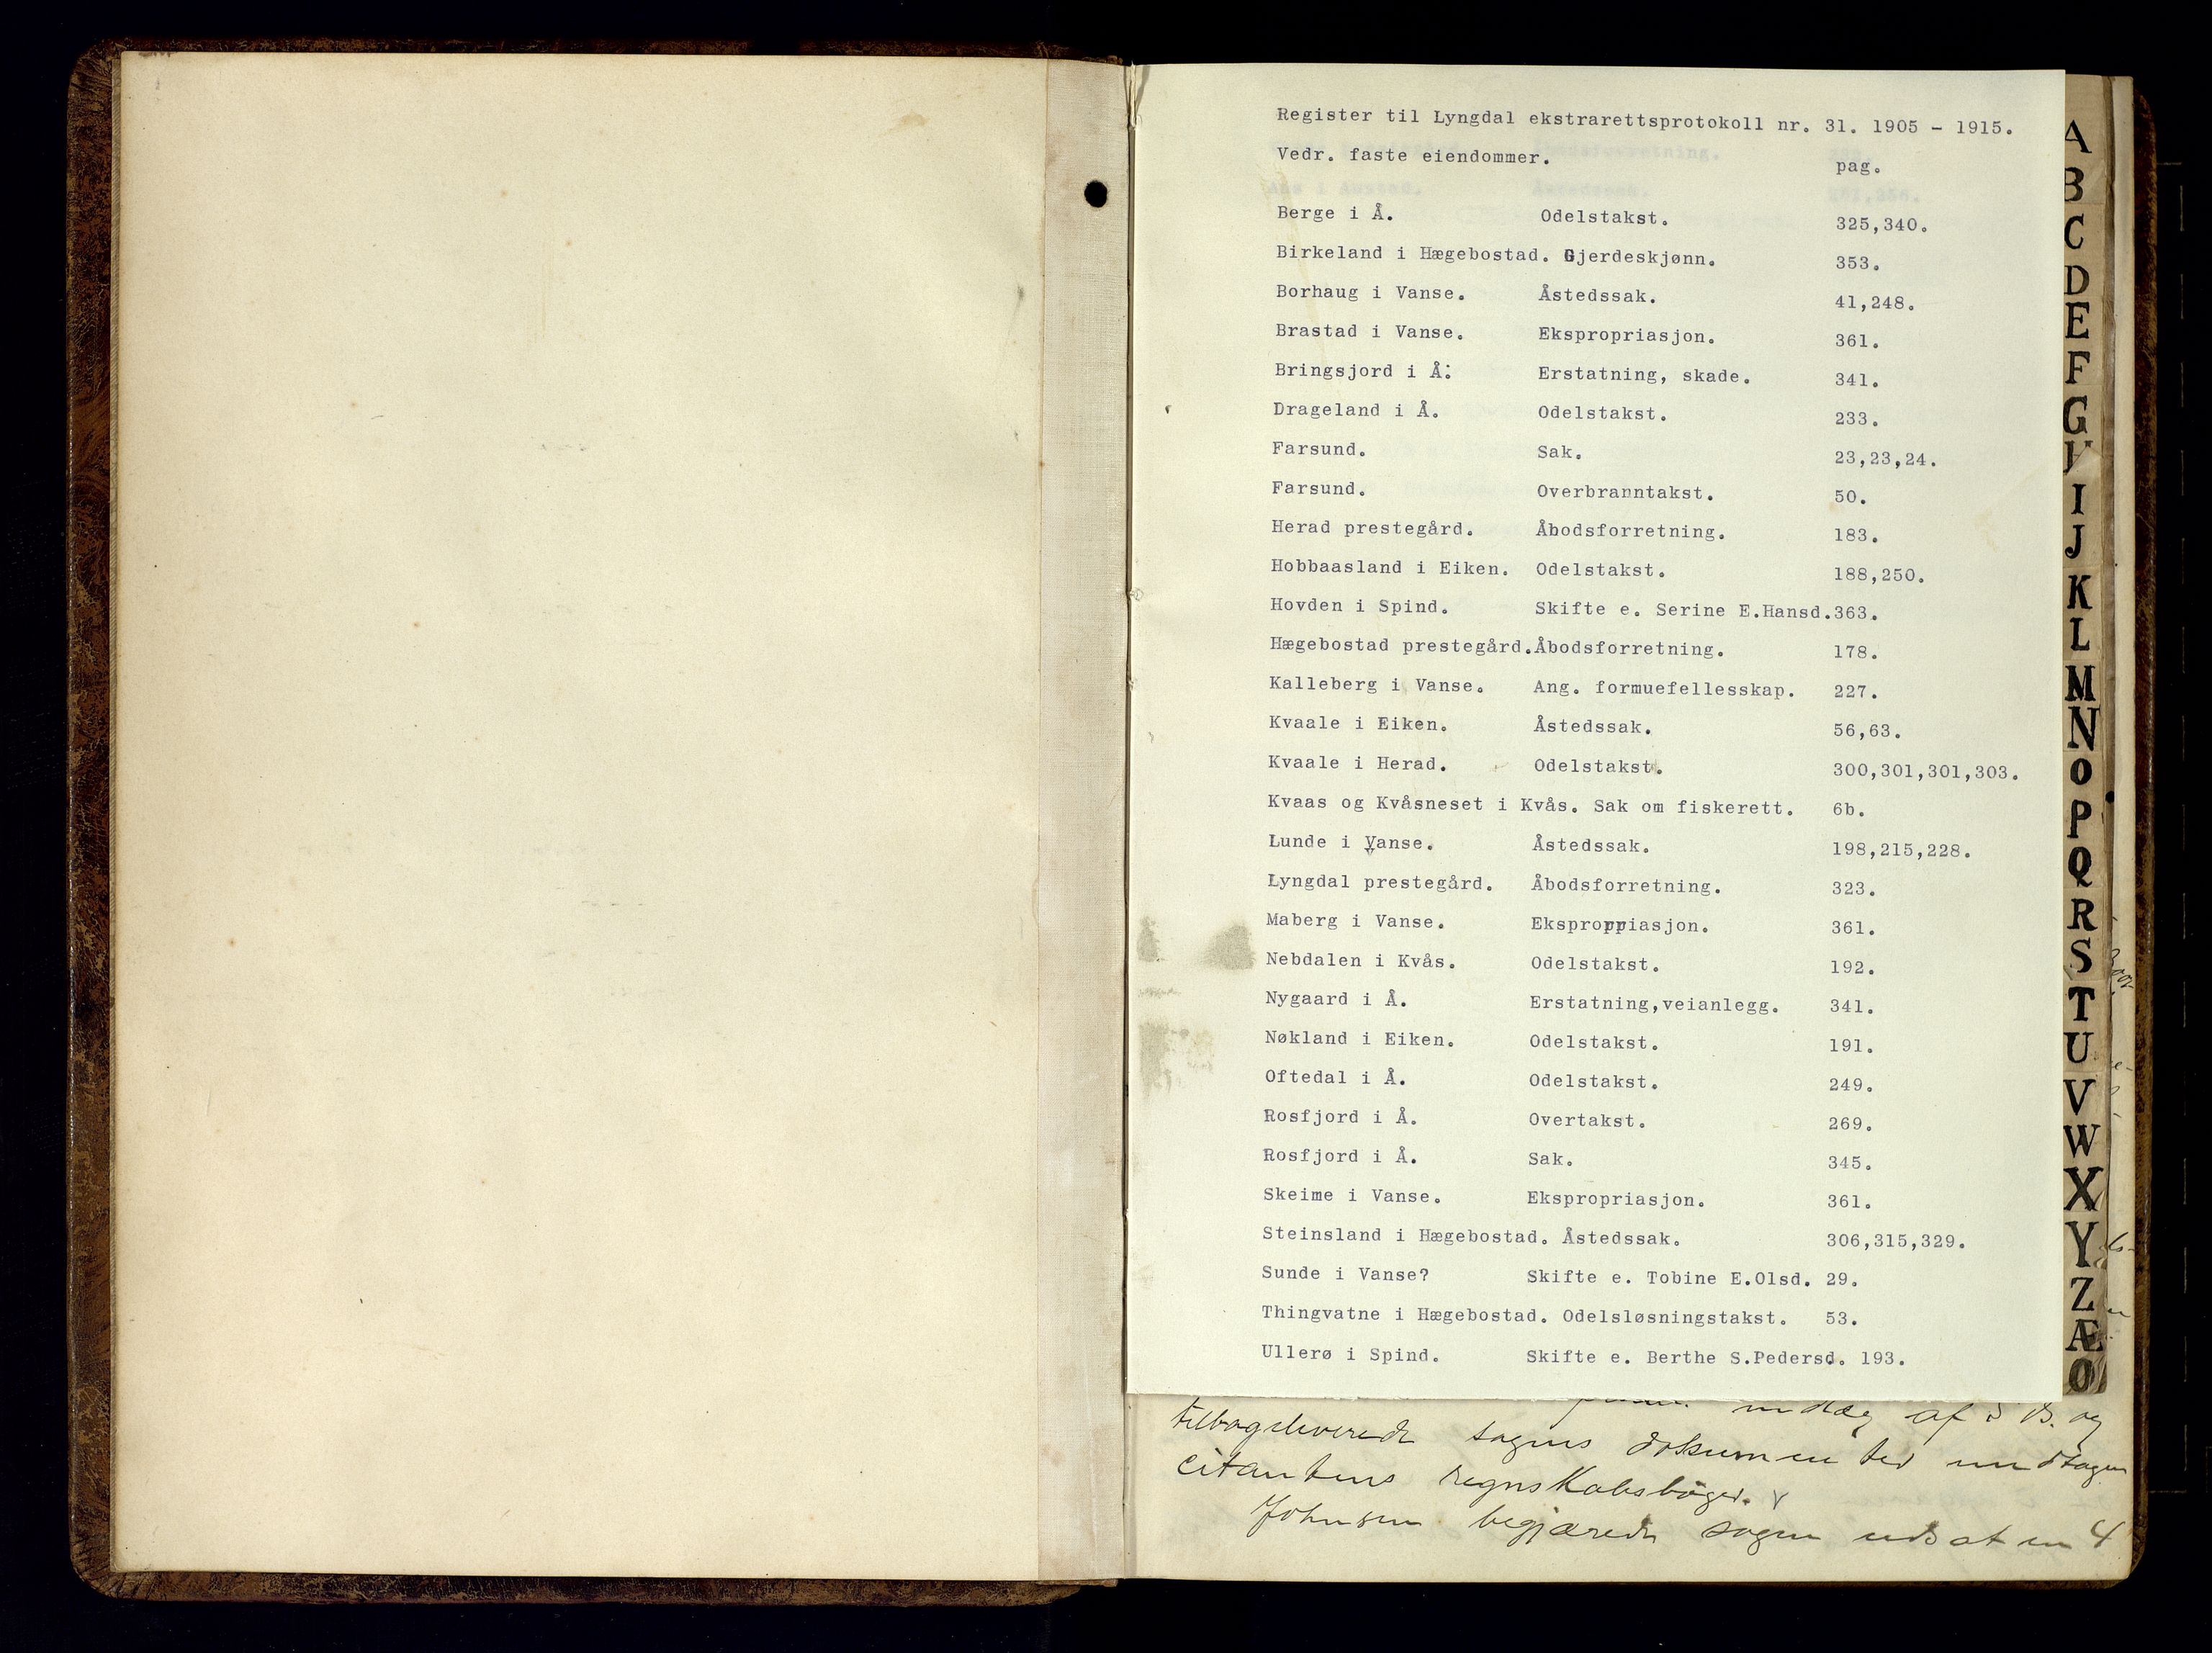 Register til Lyngdal ekstrarettsprotokoll nr. 31. 1905 - 1915.
Vedr. faste eiendommer. pag.
Berge i Å. Odelstakst. 325,340.
Birkeland i Hægebostad. Gjerdeskjønn. 353.
Borhaug i Vanse. Åstedssak. 41,248.
Brastad i Vanse. Ekspropriasjon. 361.
Bringsjord i Å. Erstatning, skade. 341.
Drageland i Å. Odelstakst. 233.
Farsund. Sak. 23,23,24.
Farsund. Overbranntakst. 50.
Herad prestegård. Åbodsforretning. 183.
Hobbaasland i Eiken. Odelstakst. 188,250.
Hovden i Spind. Skifte e. Serine E.Hansd.363.
Hægebostad prestegård.Åbodsforretning. 178.
Kalleberg i Vanse. Ang. formuefellesskap. 227.
Kvaale i Eiken. Åstedssak. 56,63.
Kvaale i Herad. Odelstakst. 300,301,301,303.
Kvaas og Kvåsneset i Kvås. Sak om fiskerett. 6b.
Lunde i Vanse. Åstedssak. 198,215,228.
Lyngdal prestegård. Åbodsforretning. 323.
Maberg i Vanse. Ekspropriasjon. 361.
Nebdalen i Kvås. Odelstakst. 192.
Nygaard i Å. Erstatning,veianlegg. 341.
Nøkland i Eiken. Odelstakst. 191.
Oftedal i Å. Odelstakst. 249.
Rosfjord i Å. Overtakst. 269.
Rosfjord i Å. Sak. 345.
Skeime i Vanse. Ekspropriasjon. 361.
Steinsland i Hægebostad. Åstedssak. 306,315,329.
Sunde i Vanse? Skifte e. Tobine E.Olsd. 29.
Thingvatne i Hægebostad. Odelsløsningstakst. 53.
Ullerø i Spind. Skifte e. Berthe S.Pedersd. 193.
indlæg af og
tilbageleverede sagens dokumenter undtagen
citantens regnskabsbøger.
Johnsen begjærede sagen udsat en 4
A
B
C
D
E
F
G
H
I
J
K
L
M
N
O
P
Q
R
S
T
U
V
W
X
Y
Z
Æ
Ø